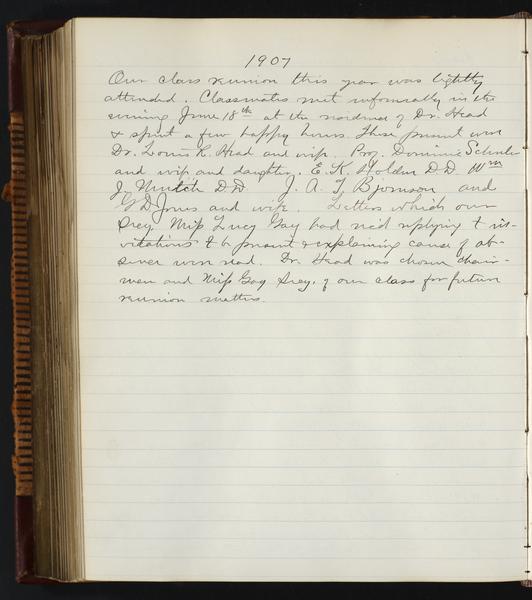 1907
Our class reunion this year was lightly
attended. Classmates met informally in the
evening June 18th at the residence of Dr. Head
& spent a few happy hours. Those present were
Dr. Louis R. Head and wife. Prof. Dominic Schuler
and wife and daughter. E. K. Holden D.D. Wm
J. Mutch D.D. J. A. T. Bjornson and
D Jones and wife. Letters which our
Srey Miss Lucy Gay had rec'd replying to in-
vitations to be present & explaining cause of ab-
sence were read. Dr. Head was chosen chair-
man and Miss Gay Srey. of our class for future
reunion matters.